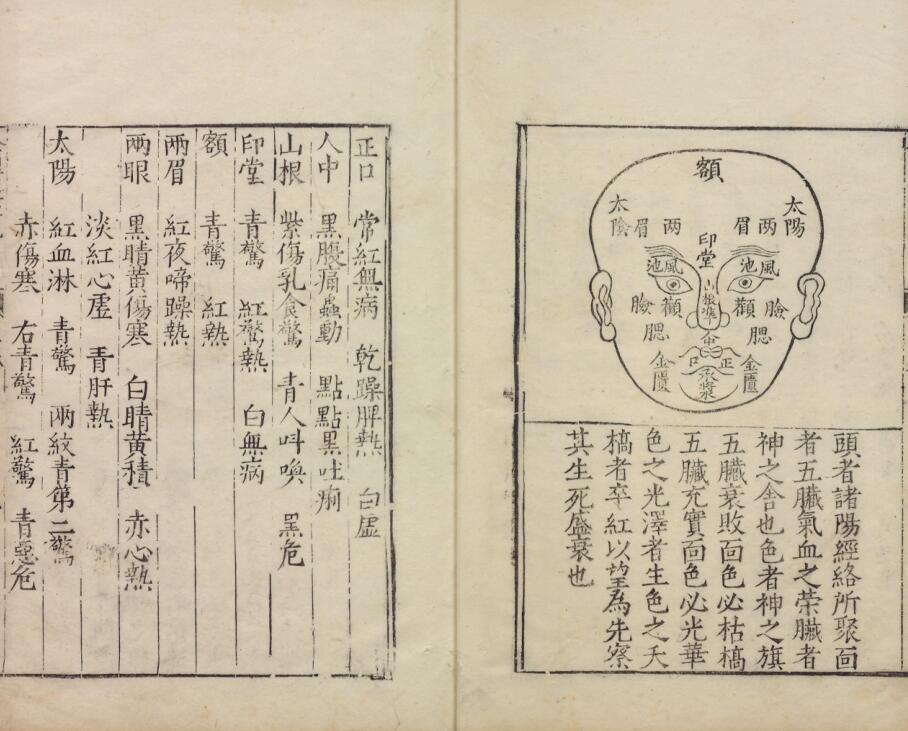 額
太陽
太陰
兩眉
兩眉
印堂
風池
風池
山根
準
顴
顴
臉
臉
腮
腮
人中
正口
承漿
金匱
金匱
頭者諸陽經絡所聚面
者五臟氣血之荣臟者
神之舍也色者神之旗
五臟衰敗面色必枯槁
五臟充實面色必光華
色之光澤者生色之夭
槁者卒紅以望為先察
其生死盛衰也
正口 常紅無病 乾躁脾熱 白虛
人中 黑腹痛蟲動 點點黑吐痢
山根 紫傷乳食驚 青人呌喚 黑危
印堂 青驚 紅驚熱 白無病
額 青驚 紅熱
兩眉 紅夜啼躁熱
兩眼 黑睛黄傷寒 白睛黄積 赤心熱
淡紅心虛 青肝熱
太陽 紅血淋 青驚 兩紋青第二驚
赤傷寒 右青驚 紅驚 青惡危